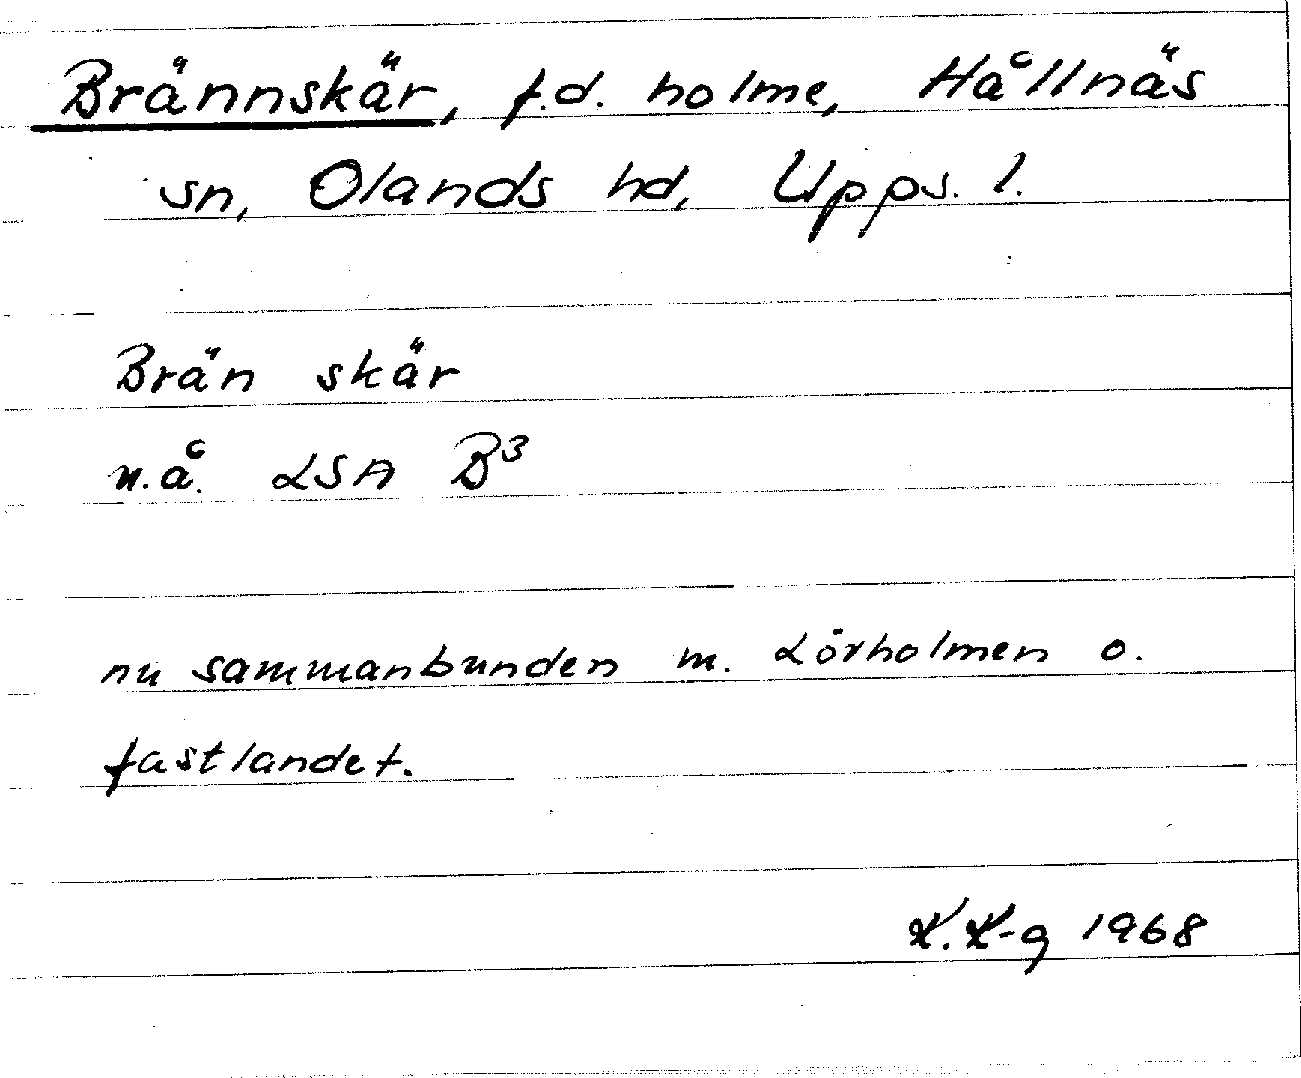 Brännskär, f.d. holme, Hållnäs
sn, Olands hd, Upps. l.
Brän skär
u.å. LSA B³
nu sammanbunden m. Lörholmen o.
fastlandet.
K.K-g 1968